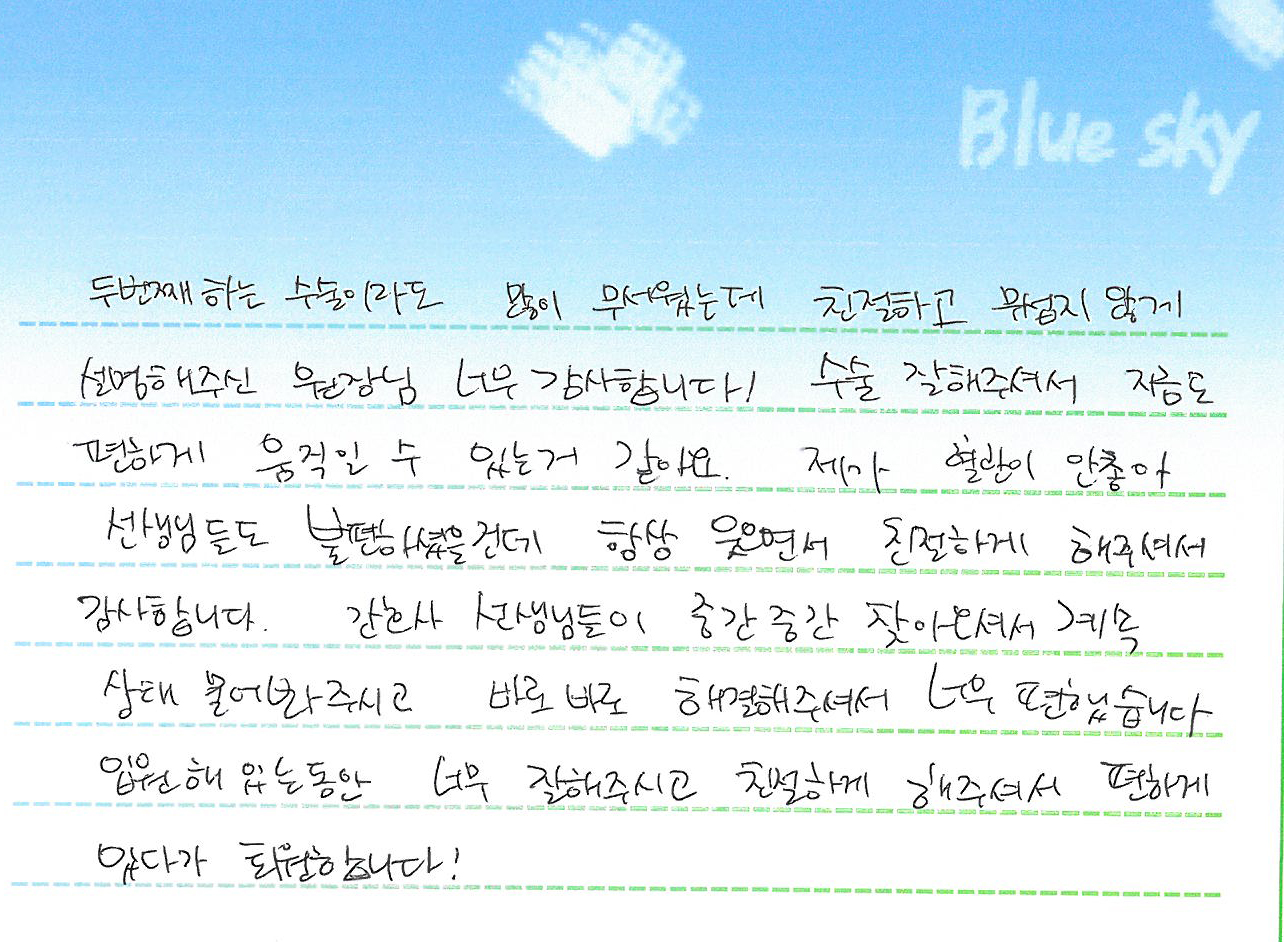 Blue sky
두번째 하는 수술이라도 많이 무서웠는데 친절하고 무섭지 않게
설명해주신 원장님 너무 감사합니다! 수술 잘해주셔서 지금도
편하게 움직일 수 있는거 같아요. 제가 혈관이 안좋아
선생님들도 불편하셨을건데 항상 웃으면서 친절하게 해주셔서
감사합니다. 간호사 선생님들이 중간중간 찾아오셔서 계속
상태 물어봐주시고 바로바로 해결해주셔서 너무 편했습니다
입원해 있는동안 너무 잘해주시고 친절하게 해주셔서 편하게
있다가 퇴원합니다!